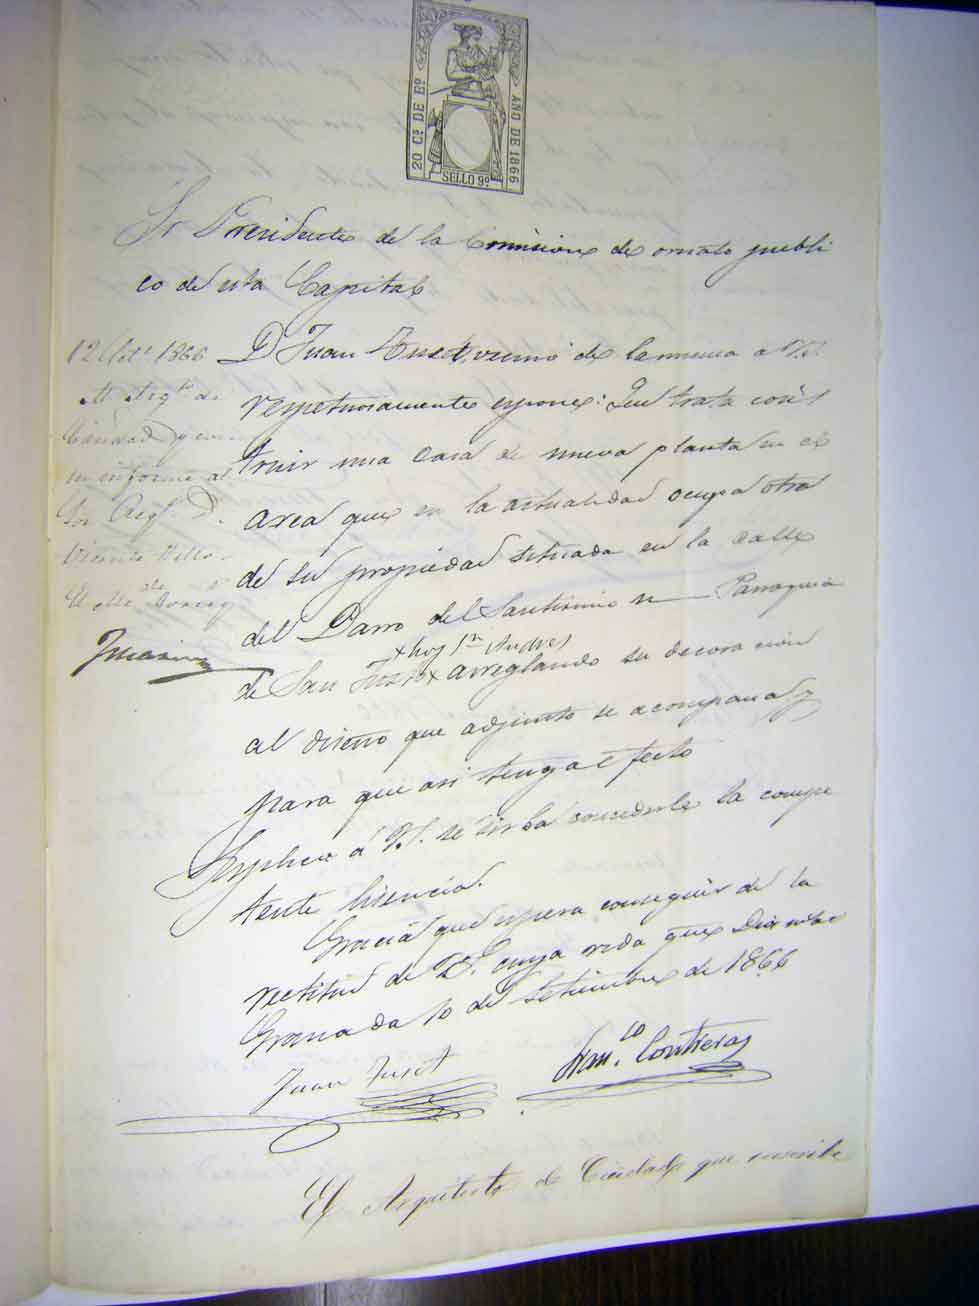 20 Cs. DE Eo.
AÑO DE 1866
SELLO 9o.
Sr Presidente de la Comision de ornato publi
co de esta Capital
D Juan Fuset, vecino de la misma a V.S.
respetuosamente espone: Que trata cons
truir una Casa de nueva planta en el
area que en la actualidad ocupa otra
de su propiedad situada en la calle
del Darro del Santisimo n Parroquia
x hoy Sn Andres
de San Justo x arreglando su decoracion
al diseño que adjunto se acompaña y
para que asi tenga efecto
Suplico á V.S. se sirba concederle la compe
tente lisencia.
Gracia que espera conseguir de la
rectitud de V.S. cuya vida gue Dios m
Granada 10 de Setiembre de 1866
Juan Fuset
Franco. Contreras
12 Set.e 1866
Al Arqto. de
Ciudad y con
su informe al
Sor Arqo. D.
Vicente
El Alc
El Arquitecto de Ciudad que suscribe